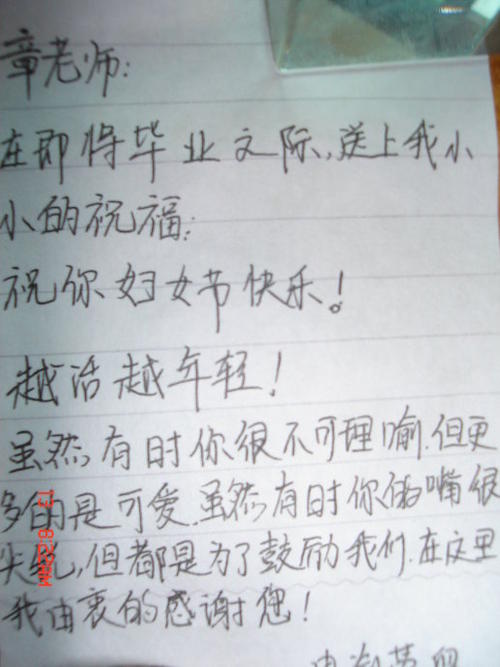 章老师:
在即将毕业之际,送上我小
小的祝福:
祝你妇女节快乐!
越活越年轻!
虽然,有时你很不可理喻.但更
多的是可爱.虽然,有时你的嘴很
尖锐,但都是为了鼓励我们.在这里
我由衷的感谢您!